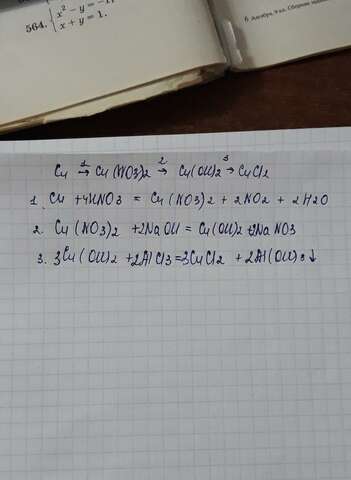 564. { x² − y = −1,
x + y = 1.
6 Алгебра, 9 кл. Сборник
Cu →¹ Cu(NO3)2 →² Cu(OH)2 →³ CuCl2
1. Cu + 4HNO3 = Cu(NO3)2 + 2NO2 + 2H2O
2. Cu(NO3)2 + 2NaOH = Cu(OH)2 + 2NaNO3
3. 3Cu(OH)2 + 2AlCl3 = 3CuCl2 + 2Al(OH)3↓